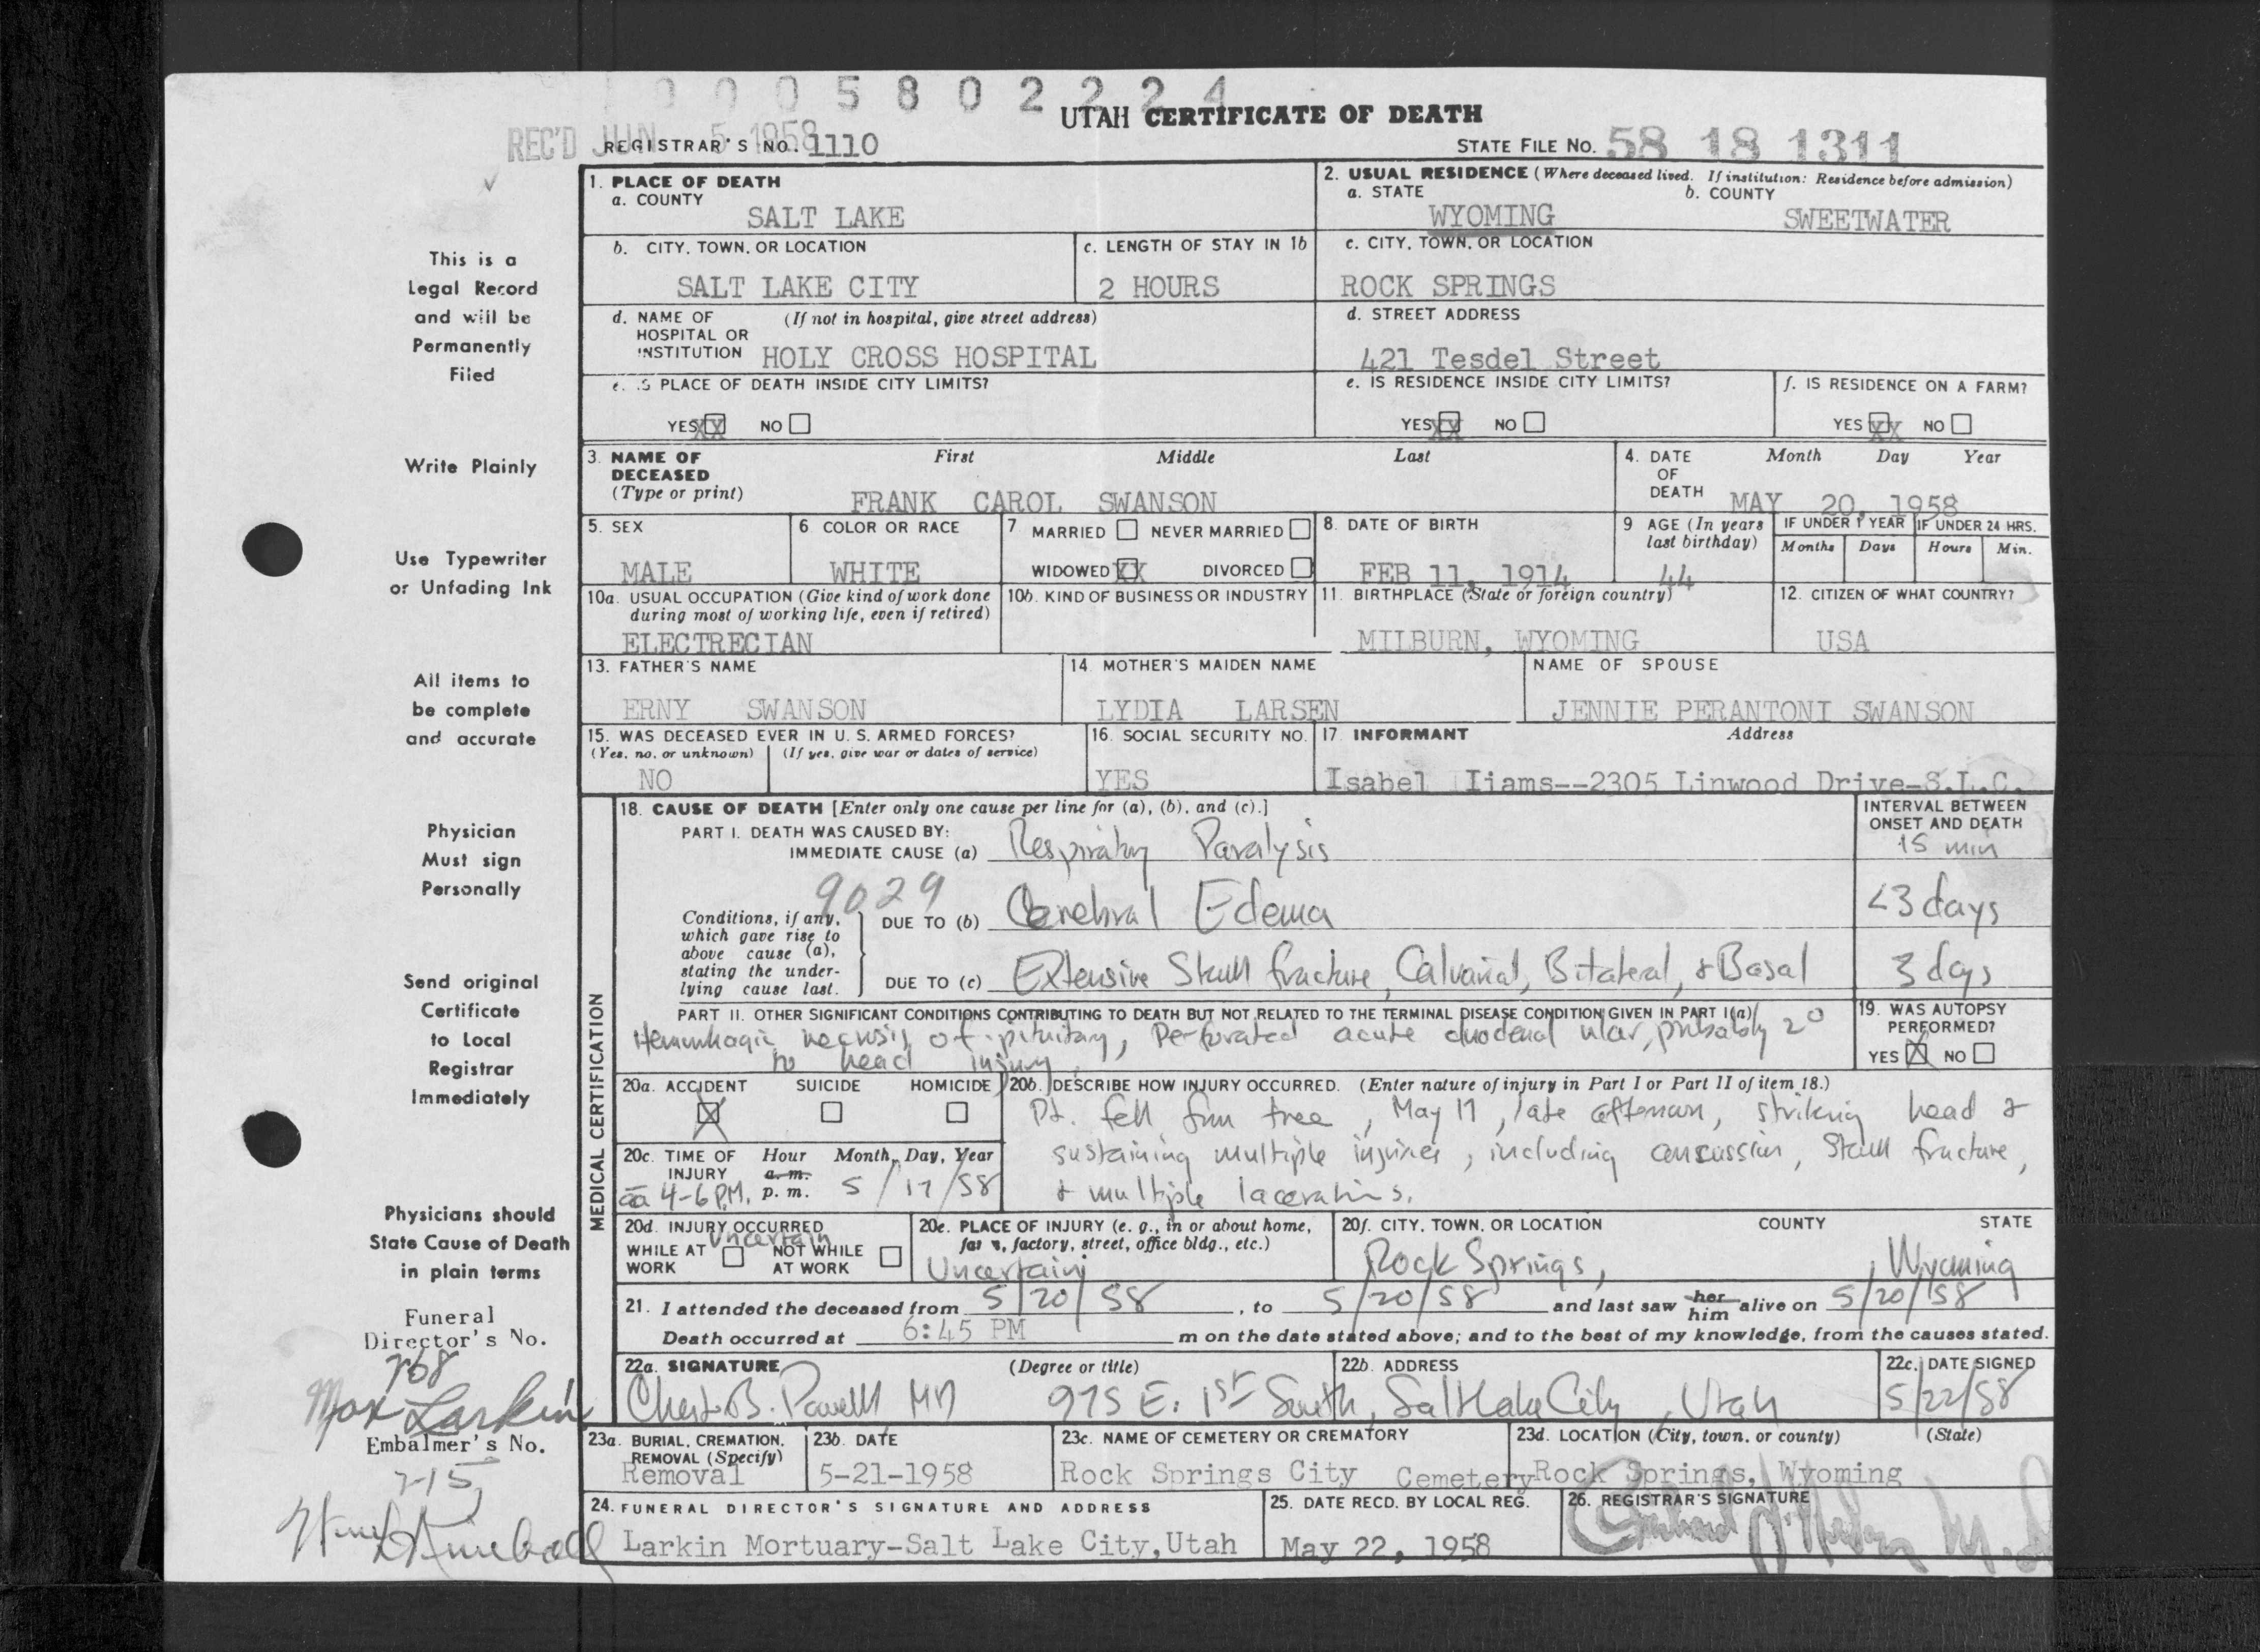 0 0 0 5 8 0 2 2 2 4
UTAH CERTIFICATE OF DEATH
REC'D JUN 5 1958
REGISTRAR'S NO. 1110
STATE FILE NO. 58 18 1311
This is a
Legal Record
and will be
Permanently
Filed
Write Plainly
Use Typewriter
or Unfading Ink
All items to
be complete
and accurate
Physician
Must sign
Personally
Send original
Certificate
to Local
Registrar
Immediately
Physicians should
State Cause of Death
in plain terms
Funeral
Director's No.
768
Max Larkin
Embalmer's No.
715
1. PLACE OF DEATH
a. COUNTY
SALT LAKE
2. USUAL RESIDENCE (Where deceased lived. If institution: Residence before admission)
a. STATE b. COUNTY
WYOMING SWEETWATER
b. CITY, TOWN, OR LOCATION
SALT LAKE CITY
c. LENGTH OF STAY IN 1b
2 HOURS
c. CITY, TOWN, OR LOCATION
ROCK SPRINGS
d. NAME OF (If not in hospital, give street address)
HOSPITAL OR
INSTITUTION HOLY CROSS HOSPITAL
d. STREET ADDRESS
421 Tesdel Street
e. IS PLACE OF DEATH INSIDE CITY LIMITS?
YES XX NO
e. IS RESIDENCE INSIDE CITY LIMITS?
YES XX NO
f. IS RESIDENCE ON A FARM?
YES XX NO
3. NAME OF First Middle Last
DECEASED
(Type or print)
FRANK CAROL SWANSON
4. DATE Month Day Year
OF
DEATH MAY 20, 1958
5. SEX
MALE
6. COLOR OR RACE
WHITE
7. MARRIED NEVER MARRIED
WIDOWED XX DIVORCED
8. DATE OF BIRTH
FEB 11, 1914
9 AGE (In years
last birthday)
44
IF UNDER 1 YEAR IF UNDER 24 HRS.
Months Days Hours Min.
10a. USUAL OCCUPATION (Give kind of work done
during most of working life, even if retired)
ELECTRECIAN
10b. KIND OF BUSINESS OR INDUSTRY
11. BIRTHPLACE (State or foreign country)
MILBURN, WYOMING
12. CITIZEN OF WHAT COUNTRY?
USA
13. FATHER'S NAME
ERNY SWANSON
14 MOTHER'S MAIDEN NAME
LYDIA LARSEN
NAME OF SPOUSE
JENNIE PERANTONI SWANSON
15. WAS DECEASED EVER IN U. S. ARMED FORCES?
(Yes, no, or unknown) (If yes, give war or dates of service)
NO
16. SOCIAL SECURITY NO.
YES
17. INFORMANT Address
Isabel Iiams--2305 Linwood Drive-S.L.C.
MEDICAL CERTIFICATION
18. CAUSE OF DEATH [Enter only one cause per line for (a), (b), and (c).]
INTERVAL BETWEEN
ONSET AND DEATH
PART I. DEATH WAS CAUSED BY:
IMMEDIATE CAUSE (a) Respiratory Paralysis 15 min
9029
Conditions, if any,
which gave rise to
above cause (a),
stating the under-
lying cause last.
DUE TO (b) Cerebral Edema <3 days
DUE TO (c) Extensive Skull fracture, Calvarial, Bilateral, & Basal 3 days
PART II. OTHER SIGNIFICANT CONDITIONS CONTRIBUTING TO DEATH BUT NOT RELATED TO THE TERMINAL DISEASE CONDITION GIVEN IN PART I(a)
Hemorrhagic necrosis of pituitary, Perforated acute duodenal ulcer, probably 2°
to head injury
19. WAS AUTOPSY
PERFORMED?
YES X NO
20a. ACCIDENT SUICIDE HOMICIDE
X
20b. DESCRIBE HOW INJURY OCCURRED. (Enter nature of injury in Part I or Part II of item 18.)
Pt. fell from tree, May 17, late afternoon, striking head &
sustaining multiple injuries, including concussion, Skull fracture,
& multiple lacerations.
20c. TIME OF Hour Month, Day, Year
INJURY a. m.
4-6 P.M. p. m. 5/17/58
20d. INJURY OCCURRED
Uncertain
WHILE AT NOT WHILE
WORK AT WORK
20e. PLACE OF INJURY (e. g., in or about home,
farm, factory, street, office bldg., etc.)
Uncertain
20f. CITY, TOWN, OR LOCATION COUNTY STATE
Rock Springs, , Wyoming
21. I attended the deceased from 5/20/58, to 5/20/58 and last saw her him alive on 5/20/58
Death occurred at 6:45 PM m on the date stated above; and to the best of my knowledge, from the causes stated.
22a. SIGNATURE (Degree or title)
Chester B. Powell MD
22b. ADDRESS
975 E. 1st South, Salt Lake City, Utah
22c. DATE SIGNED
5/22/58
23a. BURIAL, CREMATION,
REMOVAL (Specify)
Removal
23b. DATE
5-21-1958
23c. NAME OF CEMETERY OR CREMATORY
Rock Springs City Cemetery
23d. LOCATION (City, town, or county) (State)
Rock Springs, Wyoming
24. FUNERAL DIRECTOR'S SIGNATURE AND ADDRESS
Larkin Mortuary-Salt Lake City, Utah
25. DATE RECD. BY LOCAL REG.
May 22, 1958
26. REGISTRAR'S SIGNATURE